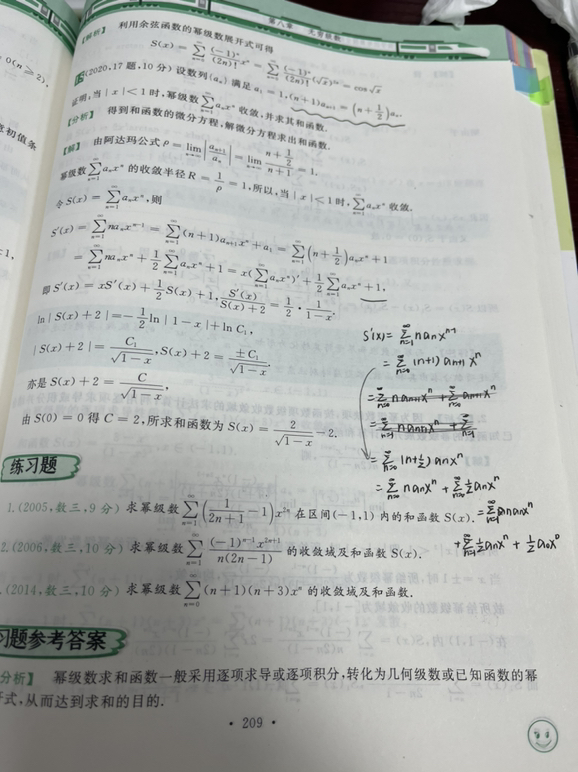 第八章 无穷级数
【解析】 利用余弦函数的幂级数展开式可得
S(x) = ∑_{n=0}^{∞} (-1)^n/(2n)! x^n = ∑_{n=0}^{∞} (-1)^n/(2n)! (√x)^{2n} = cos√x
(2020,17题,10分) 设数列{a_n} 满足 a_1 = 1,(n+1)a_{n+1} = (n + 1/2)a_n,
证明:当 |x| < 1 时,幂级数 ∑_{n=1}^{∞} a_n x^n 收敛,并求其和函数.
【分析】 得到和函数的微分方程,解微分方程求出和函数.
【解】 由阿达玛公式 ρ = lim_{n→∞} |a_{n+1}/a_n| = lim_{n→∞} (n + 1/2)/(n+1) = 1.
幂级数 ∑_{n=1}^{∞} a_n x^n 的收敛半径 R = 1/ρ = 1,所以,当 |x| < 1 时, ∑_{n=1}^{∞} a_n x^n 收敛.
令 S(x) = ∑_{n=1}^{∞} a_n x^n,则
S'(x) = ∑_{n=1}^{∞} na_n x^{n-1} = ∑_{n=1}^{∞} (n+1)a_{n+1}x^n + a_1 = ∑_{n=1}^{∞} (n + 1/2)a_n x^n + 1
= ∑_{n=1}^{∞} na_n x^n + 1/2 ∑_{n=1}^{∞} a_n x^n + 1 = x(∑_{n=1}^{∞} a_n x^n)' + 1/2 ∑_{n=1}^{∞} a_n x^n + 1,
即 S'(x) = xS'(x) + 1/2 S(x) + 1, S'(x)/(S(x)+2) = 1/2 · 1/(1-x).
ln|S(x)+2| = -1/2 ln|1-x| + ln C_1,
|S(x)+2| = C_1/√(1-x), S(x)+2 = ±C_1/√(1-x).
亦是 S(x)+2 = C/√(1-x),
由 S(0) = 0 得 C = 2,所求和函数为 S(x) = 2/√(1-x) - 2.
S'(x) = ∑_{n=1}^{∞} n a_n x^{n-1}
= ∑_{n=0}^{∞} (n+1) a_{n+1} x^n
= ∑_{n=0}^{∞} (n+1/2) a_n x^n
= ∑_{n=0}^{∞} n a_n x^n + ∑_{n=0}^{∞} 1/2 a_n x^n
= ∑_{n=1}^{∞} n a_n x^n
+ ∑_{n=1}^{∞} 1/2 a_n x^n + 1/2 a_0 x^0
练习题
1.(2005,数三,9分) 求幂级数 ∑_{n=1}^{∞} (1/(2n+1) - 1)x^{2n} 在区间(-1,1) 内的和函数 S(x).
2.(2006,数三,10分) 求幂级数 ∑_{n=1}^{∞} (-1)^{n-1}x^{2n+1}/(n(2n-1)) 的收敛域及和函数 S(x).
.(2014,数三,10分) 求幂级数 ∑_{n=0}^{∞} (n+1)(n+3)x^n 的收敛域及和函数.
习题参考答案
分析】 幂级数求和函数一般采用逐项求导或逐项积分,转化为几何级数或已知函数的幂
开式,从而达到求和的目的.
• 209 •